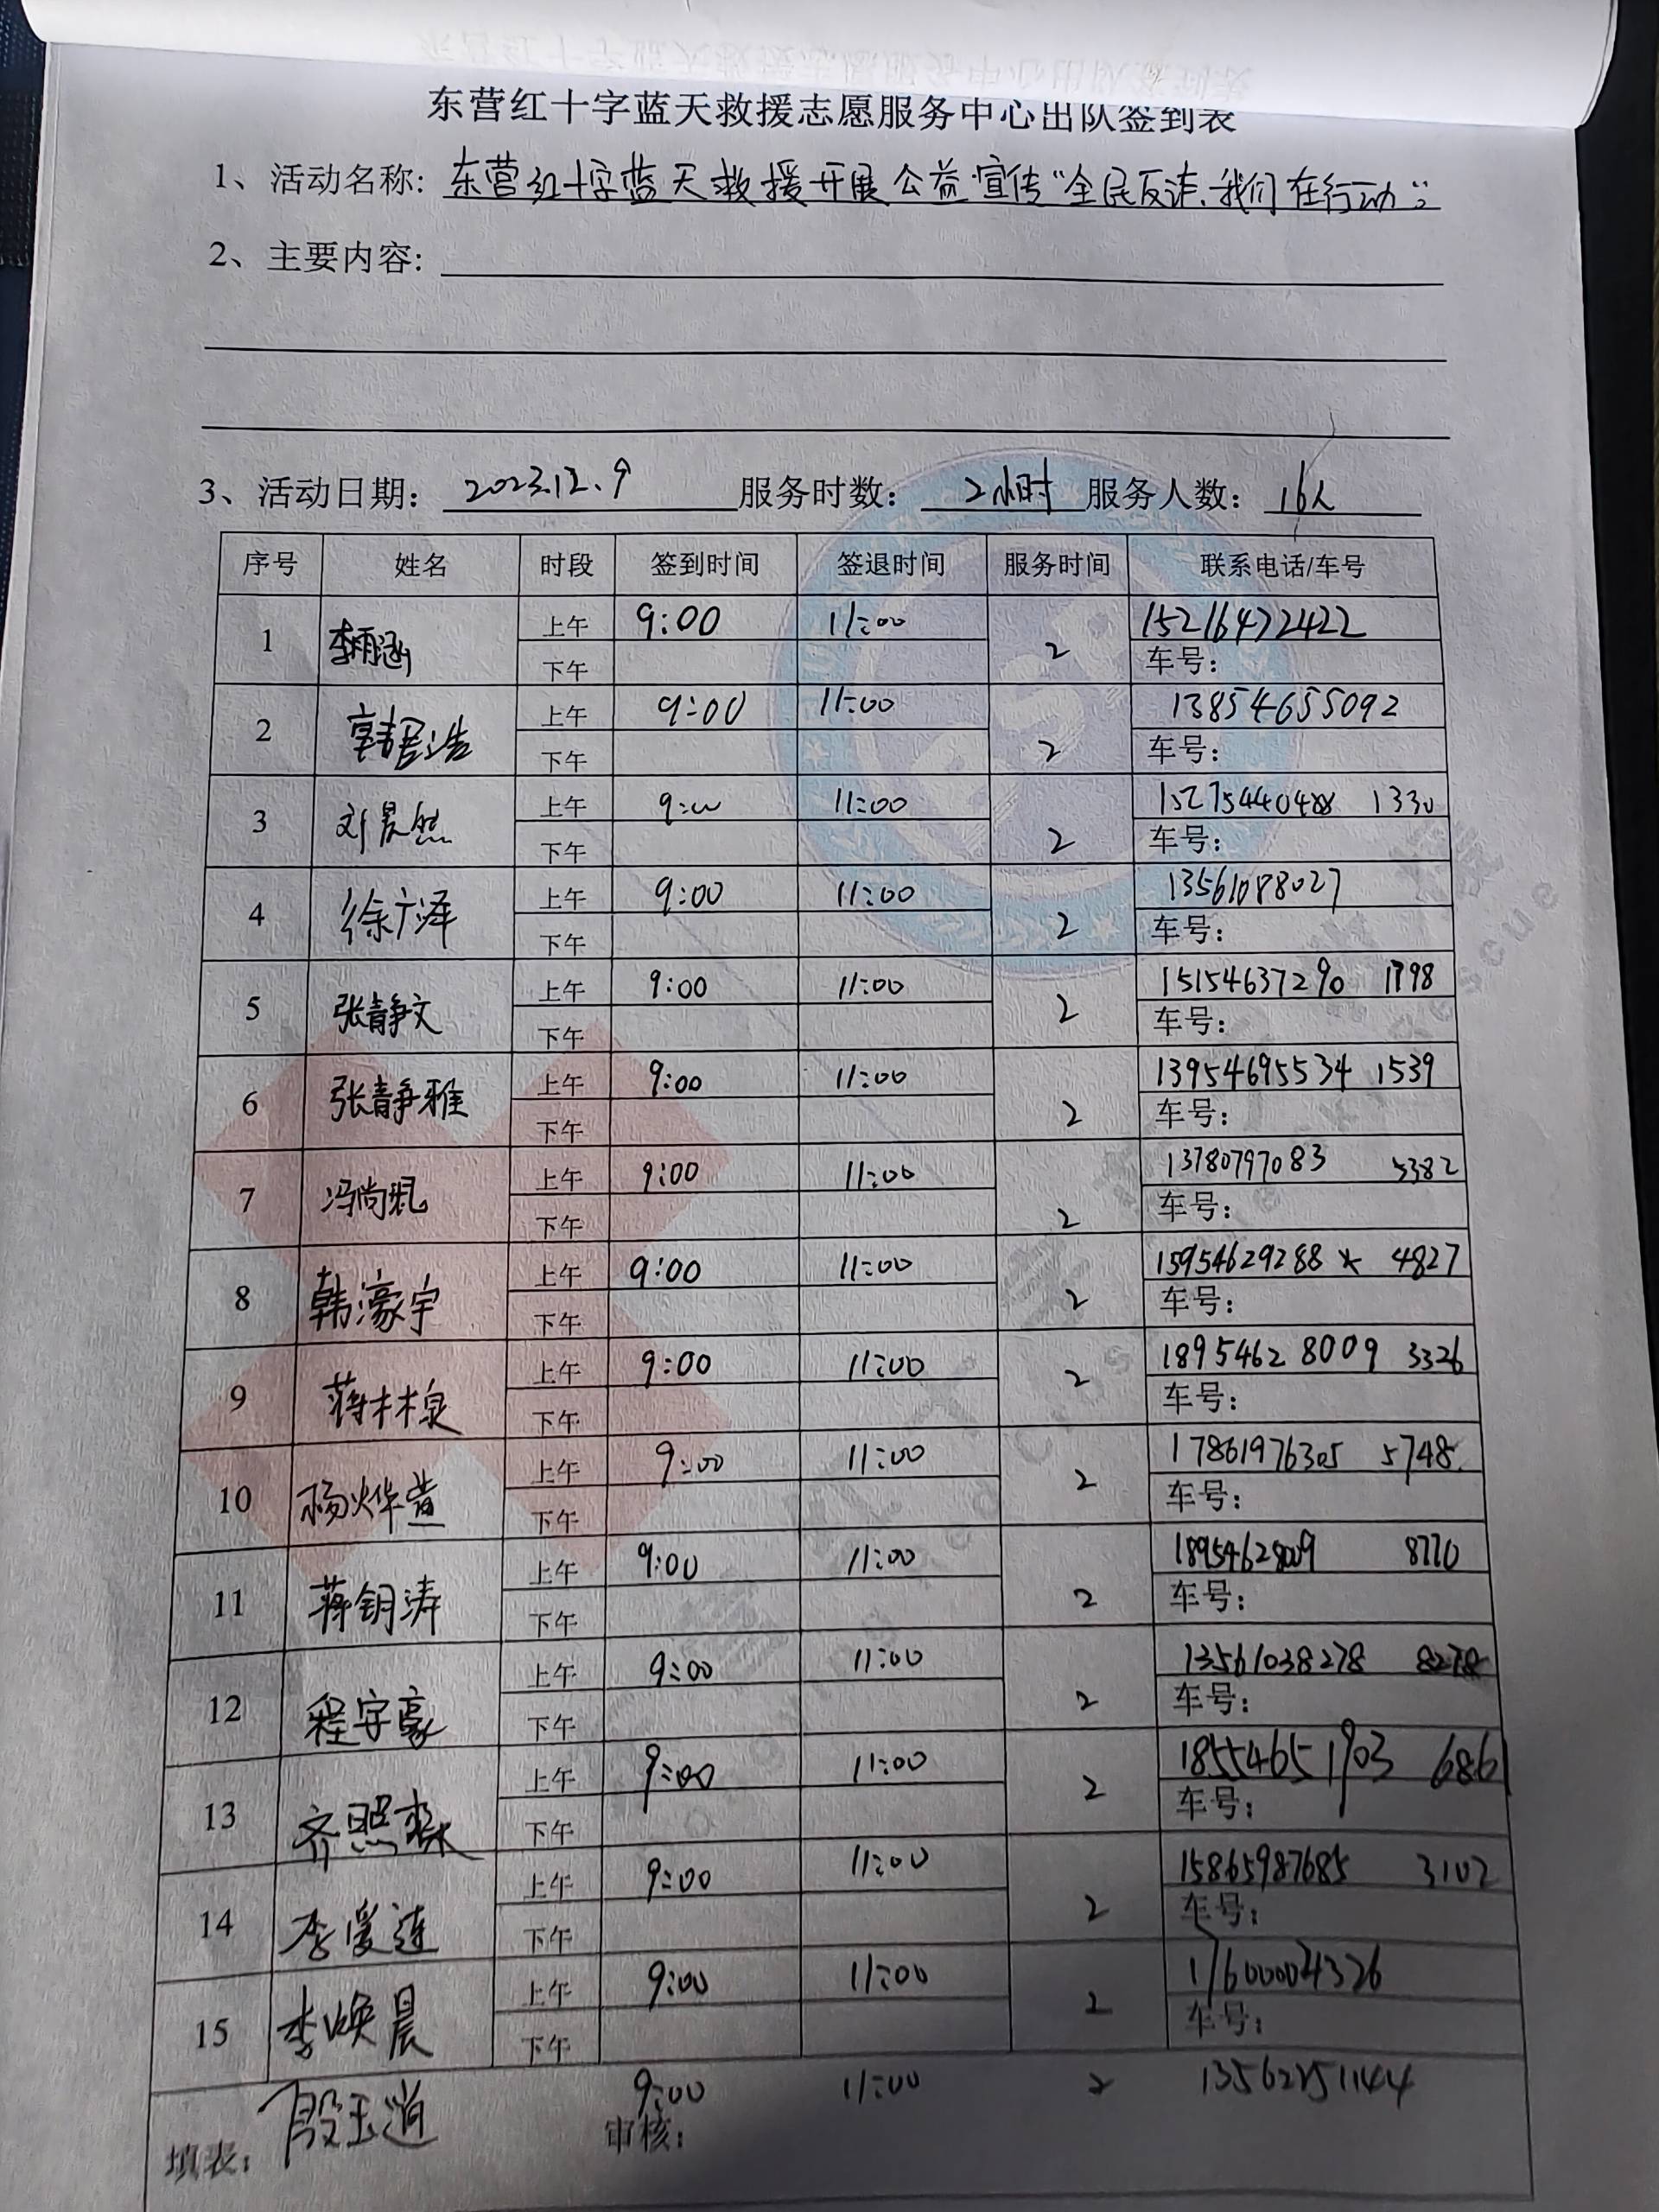 东营红十字蓝天救援志愿服务中心出队签到表
1、活动名称: 东营红十字蓝天救援开展公益宣传“全民反诈、我们在行动”
2、主要内容:
3、活动日期: 2023.12.9 服务时数: 2小时 服务人数: 16人
序号 姓名 时段 签到时间 签退时间 服务时间 联系电话/车号
1 李雨涵 上午 9:00 11:00 2 15216472422
下午 车号:
2 上午 9:00 11:00 2 13854655092
下午 车号:
3 刘晨然 上午 9:00 11:00 2 15275440488 1330
下午 车号:
4 徐广泽 上午 9:00 11:00 2 13561088027
下午 车号:
5 张静文 上午 9:00 11:00 2 15154637290 1798
下午 车号:
6 张静雅 上午 9:00 11:00 2 13954695534 1539
下午 车号:
7 冯尚 上午 9:00 11:00 2 13780797083 5382
下午 车号:
8 韩濠宇 上午 9:00 11:00 2 15954629288 4827
下午 车号:
9 蒋林泉 上午 9:00 11:00 2 18954628009 3326
下午 车号:
10 杨烨萱 上午 9:00 11:00 2 17861976305 5748
下午 车号:
11 蒋钥涛 上午 9:00 11:00 2 18954628009 8770
下午 车号:
12 程宇豪 上午 9:00 11:00 2 13561038278 8278
下午 车号:
13 齐照森 上午 9:00 11:00 2 18554651903 6861
下午 车号:
14 李爱莲 上午 9:00 11:00 2 15865987685 3102
下午 车号:
15 李焕晨 上午 9:00 11:00 2 17600004326
下午 车号:
殷玉 9:00 11:00 2 13562751144
填表: 审核: